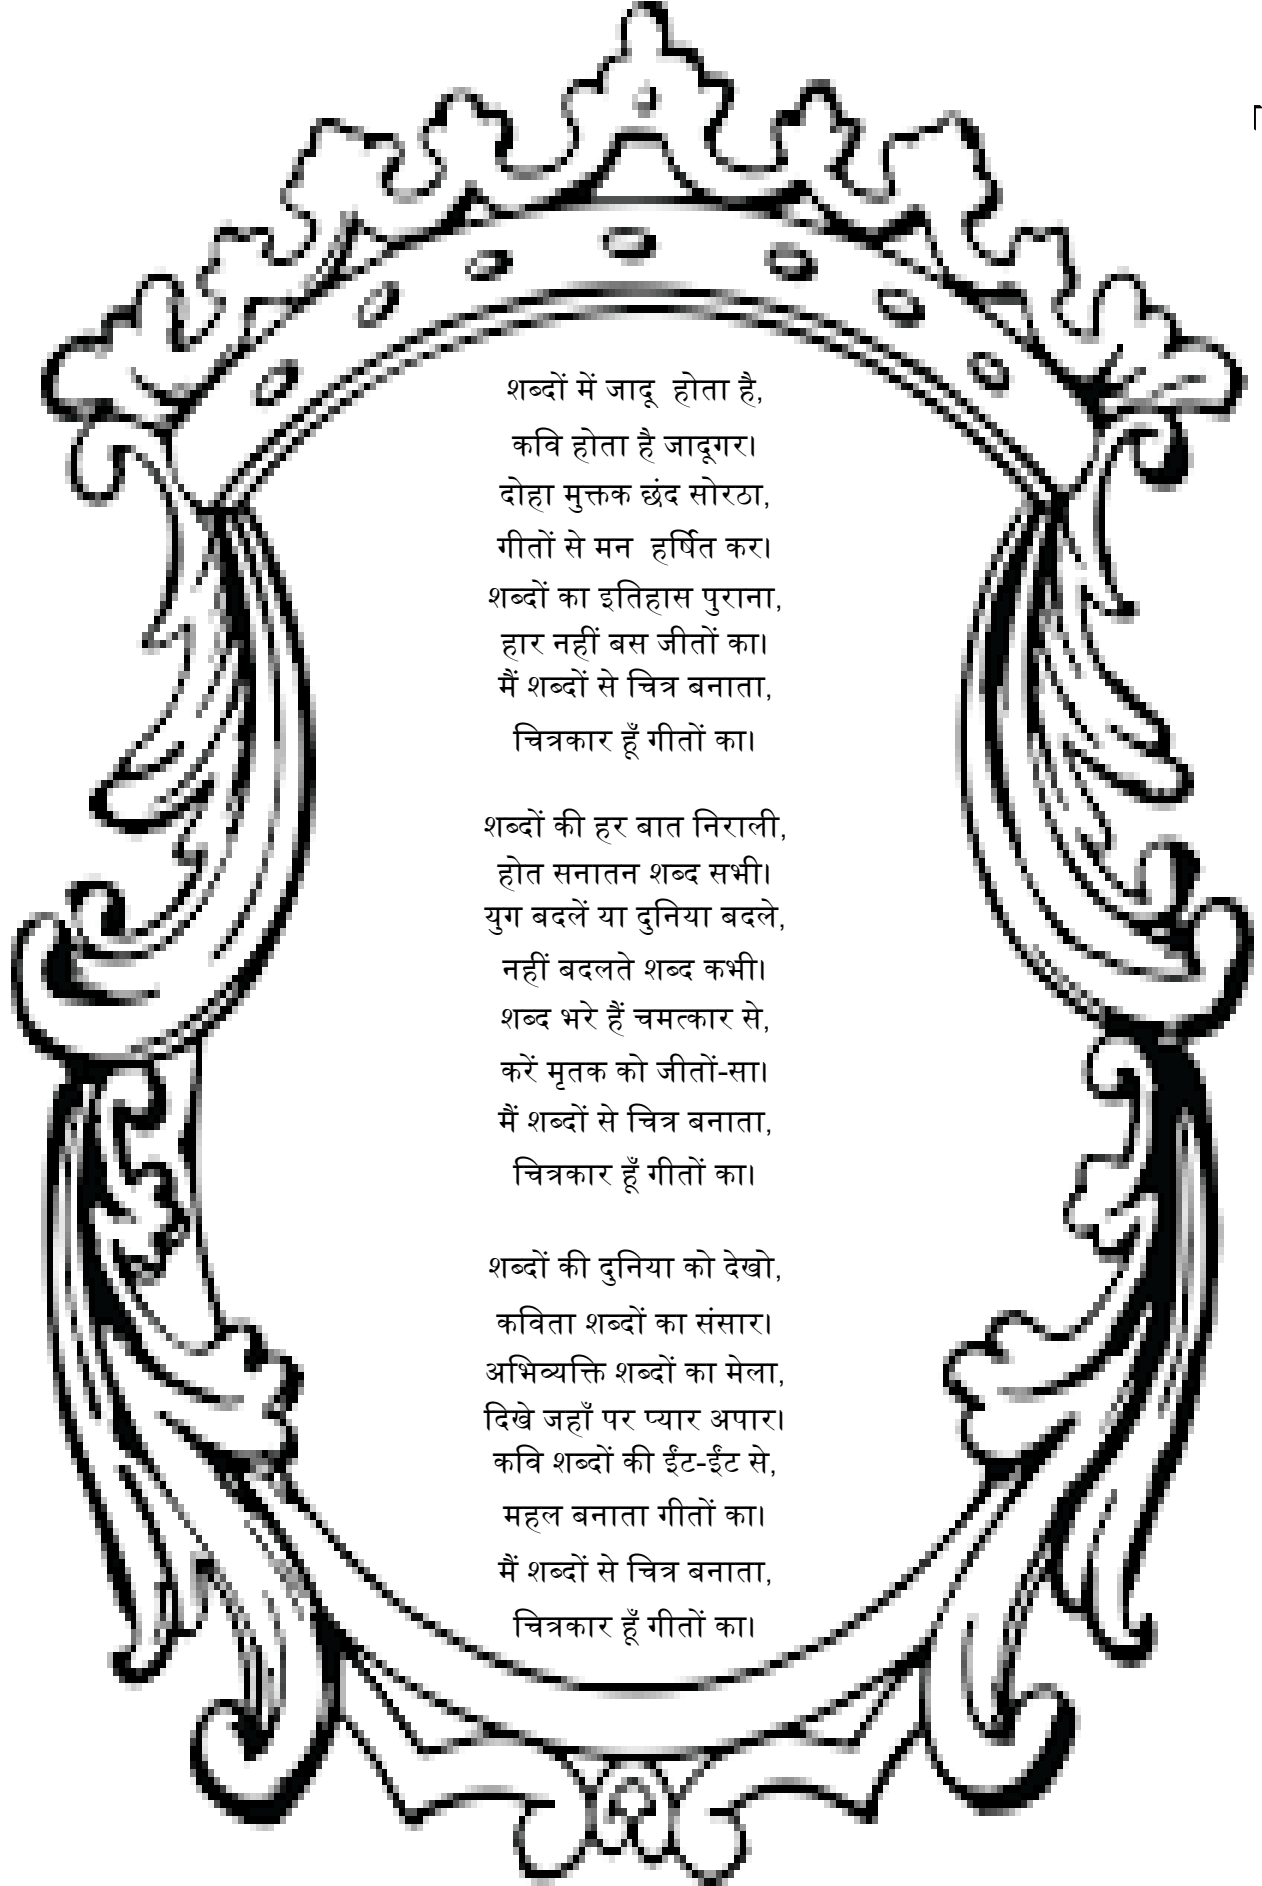 शब्दों में जादू होता है,
कवि होता है जादूगर।
दोहा मुक्तक छंद सोरठा,
गीतों से मन हर्षित कर।
शब्दों का इतिहास पुराना,
हार नहीं बस जीतों का।
मैं शब्दों से चित्र बनाता,
चित्रकार हूँ गीतों का।
शब्दों की हर बात निराली,
होत सनातन शब्द सभी।
युग बदलें या दुनिया बदले,
नहीं बदलते शब्द कभी।
शब्द भरे हैं चमत्कार से,
करें मृतक को जीतों-सा।
मैं शब्दों से चित्र बनाता,
चित्रकार हूँ गीतों का।
शब्दों की दुनिया को देखो,
कविता शब्दों का संसार।
अभिव्यक्ति शब्दों का मेला,
दिखे जहाँ पर प्यार अपार।
कवि शब्दों की ईंट-ईंट से,
महल बनाता गीतों का।
मैं शब्दों से चित्र बनाता,
चित्रकार हूँ गीतों का।